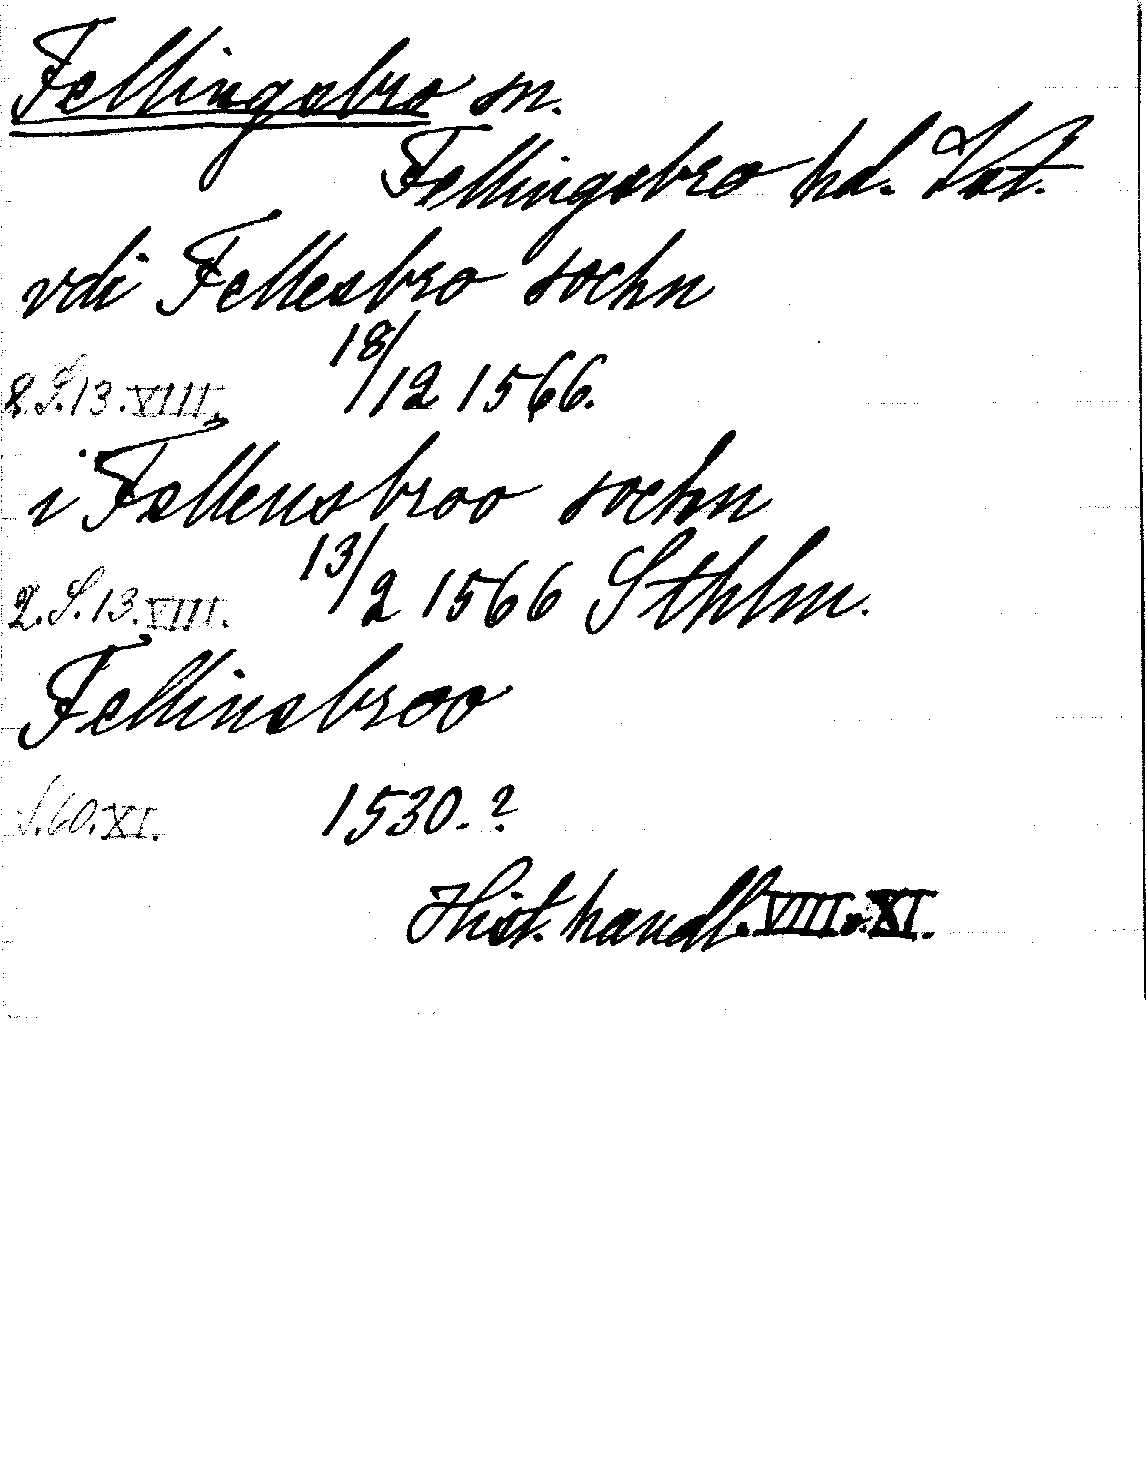 Fellingsbro sn.
Fellingsbro hd. Vst.
vdi Fellesbro sochn
18/12 1566.
2.S.13.VIII.
i Fellensbroo sochn
13/2 1566 Sthlm.
2.S.13.VIII.
Fellinsbroo
S.60.XI. 1530.?
Hist. handl. VIII o. XI.